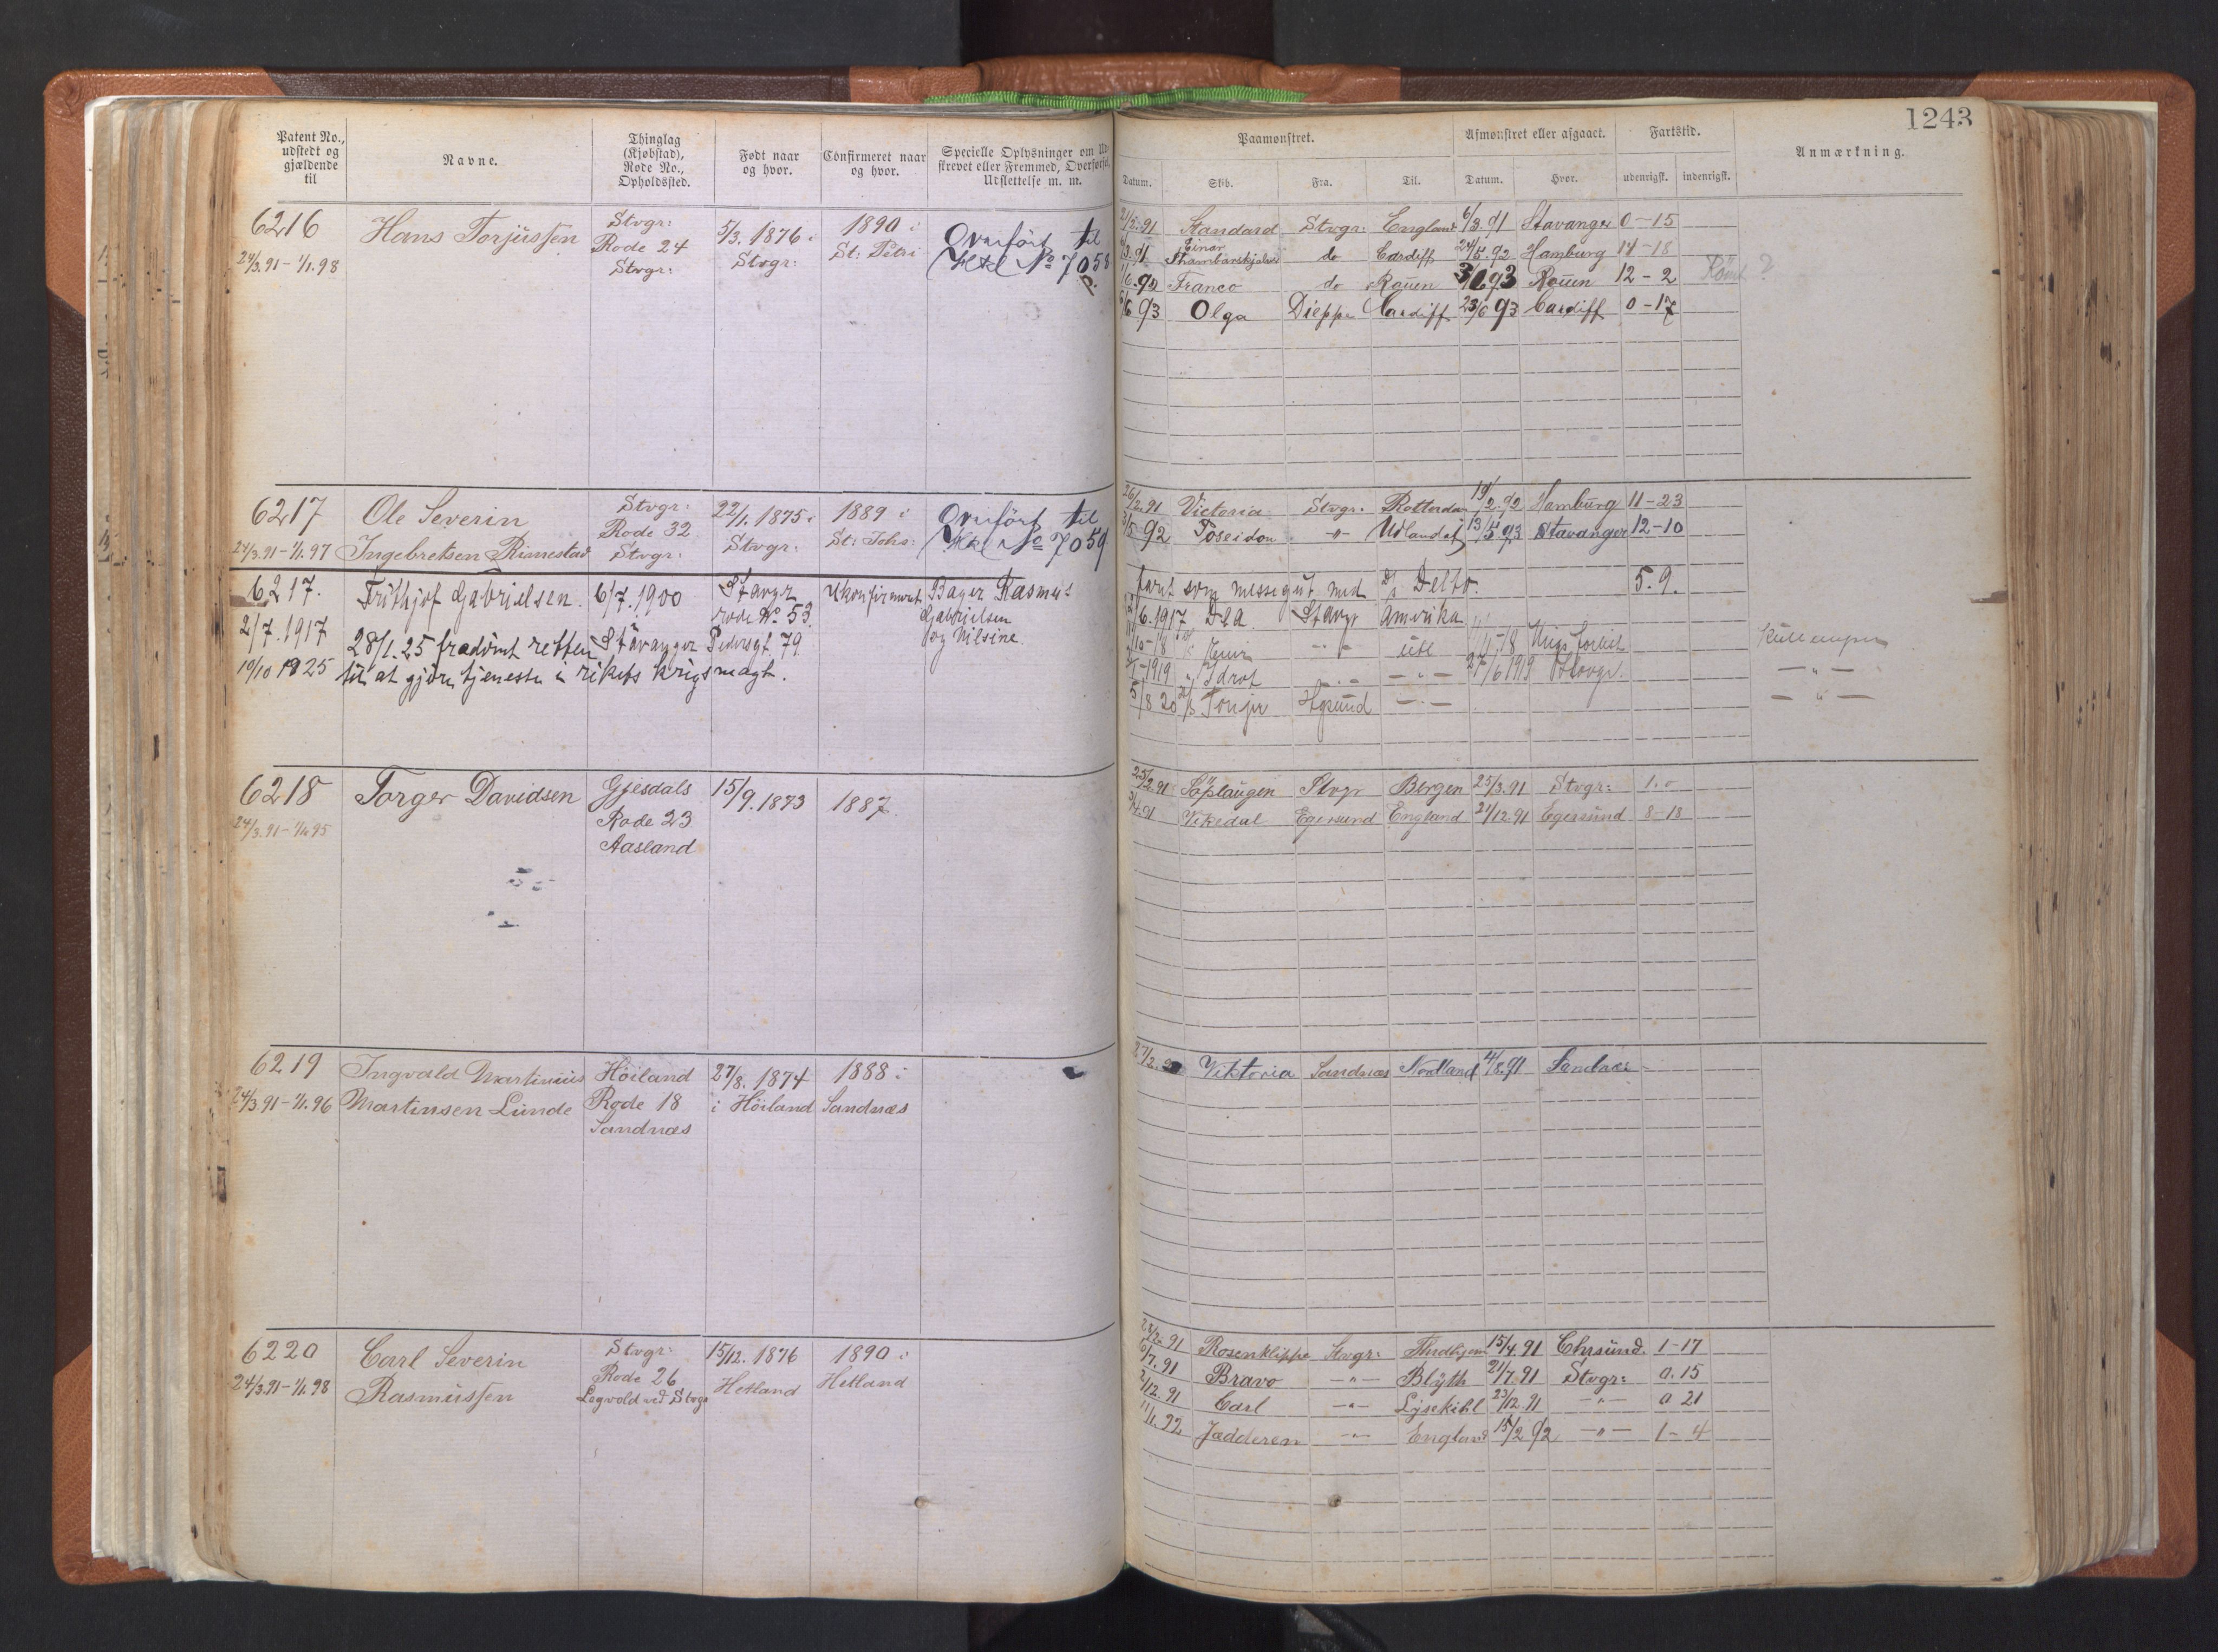 1243
Patent No., udstedt og gjældende til
Navne.
Thinglag (Kjøbstad), Rode No., Opholdssted.
Født naar og hvor.
Confirmeret naar og hvor.
Specielle Oplysninger om Ud-
skrevet eller Fremmed, Overførsel,
Udslettelse m. m.
Paamønstret.
Afmønstret eller afgaaet.
Fartstid.
Anmærkning.
Datum. Skib. Fra. Til. Datum. Hvor. udenrigsk. indenrigsk.
6216 Hans Torjussen Stvgr: 5/3. 1876 i 1890 i Overført til
24/3.91 - 1/1.98 Rode 24 Stvgr: St: Petri Htl No 7058
Stvgr:
Standard Stvgr: England 6/3.91 Stavanger 0-15
Einar
Thambarskjelver do Cardiff 24/5.92 Hamburg 14-18
Franco do Rouen 93 Rouen 12-2
6/6 93 Olga Dieppe Cardiff 23/6 93 Cardiff 0-17
6217 Ole Severin Stvgr: 22/1. 1875 i 1889 i Overført til
24/3.91 - 1/1.97 Ingebretsen Rimestad Rode 32 Stvgr: St: Johs: No 7059
Stvgr:
26/2.91 Victoria Stvgr. Rotterdam 19/2.92 Hamburg 11-23
92 Poseidon -"- Udlandet 13/5 93 Stavanger 12-10
6217. Frithjof Gabrielsen. 6/7.1900 Stavgr Ukonfirmert Bager Rasmus
rode No. 53. Gabrielsen
2/7.1917 28/1.25 fradømt retten Stavanger Pedersgt 79 og Nilsine
19/10 1925 til at gjøre tjeneste i rikets krigsmagt.
faret som messegut med D/S Delto. 5.9.
6.1917 Stavgr Amerika
utl
1919 Idrot 27/6 1919
5/8 20 Hgsund
6218 Torger Davidsen Gjesdals 15/9.1873 1887
24/3.91 - 1/1.95 Rode 23
Aasland
25/2.91 Stvgr Bergen 25/3.91 Stvgr: 1.0
Vikedal Egersund England 21/12.91 Egersund 8-18
6219 Ingvald Martinius Høiland 27/8. 1874 1888 i
24/3.91 - 1/1.96 Martinsen Lunde Rode 18 i Høiland Sandnæs
Sandnæs
Viktoria Sandnæs Nordland 4/8.91 Sandnæs
6220 Carl Severin Stvgr: 15/12. 1876 1890 i
24/3.91 - 1/1.98 Rasmussen Rode 26 Hetland Hetland
28/2.91 Rosenklippe Stvgr: 15/4.91 Chrsund. 1-17
7.91 Bravo -"- Blyth 21/7.91 Stvgr: 0.15
2/12.91 Carl -"- Lysekihl 23/12.91 -"- 0 21
Jædderen -"- England 15/2 92 -"- 1-4